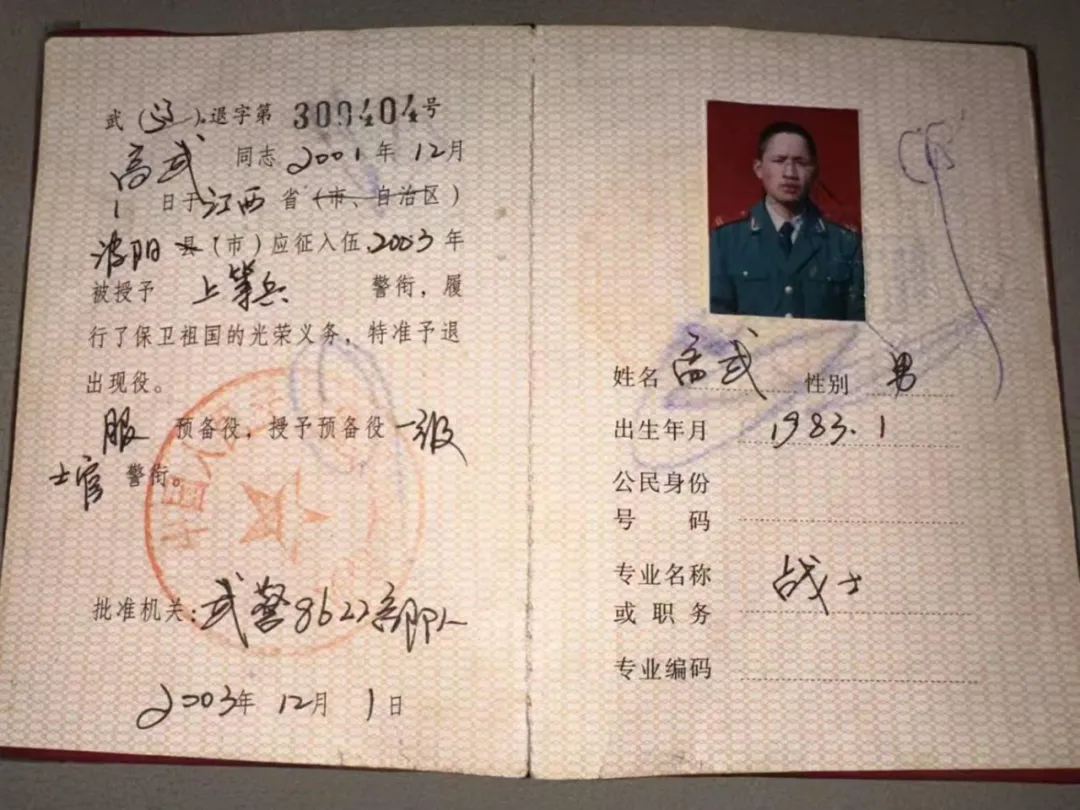 武（辽）退字第300404号
高武 同志2001年12月
1 日于江西省（市、自治区）
波阳县（市）应征入伍.2003年
被授予 上等兵 警衔，履
行了保卫祖国的光荣义务，特准予退
出现役。
服 预备役，授予预备役一级
士官 警衔。
批准机关：武警8622部队
2003年 12月 1日
姓名 高武 性别 男
出生年月 1983.1
公民身份
号 码
专业名称 战士
或 职 务
专业编码